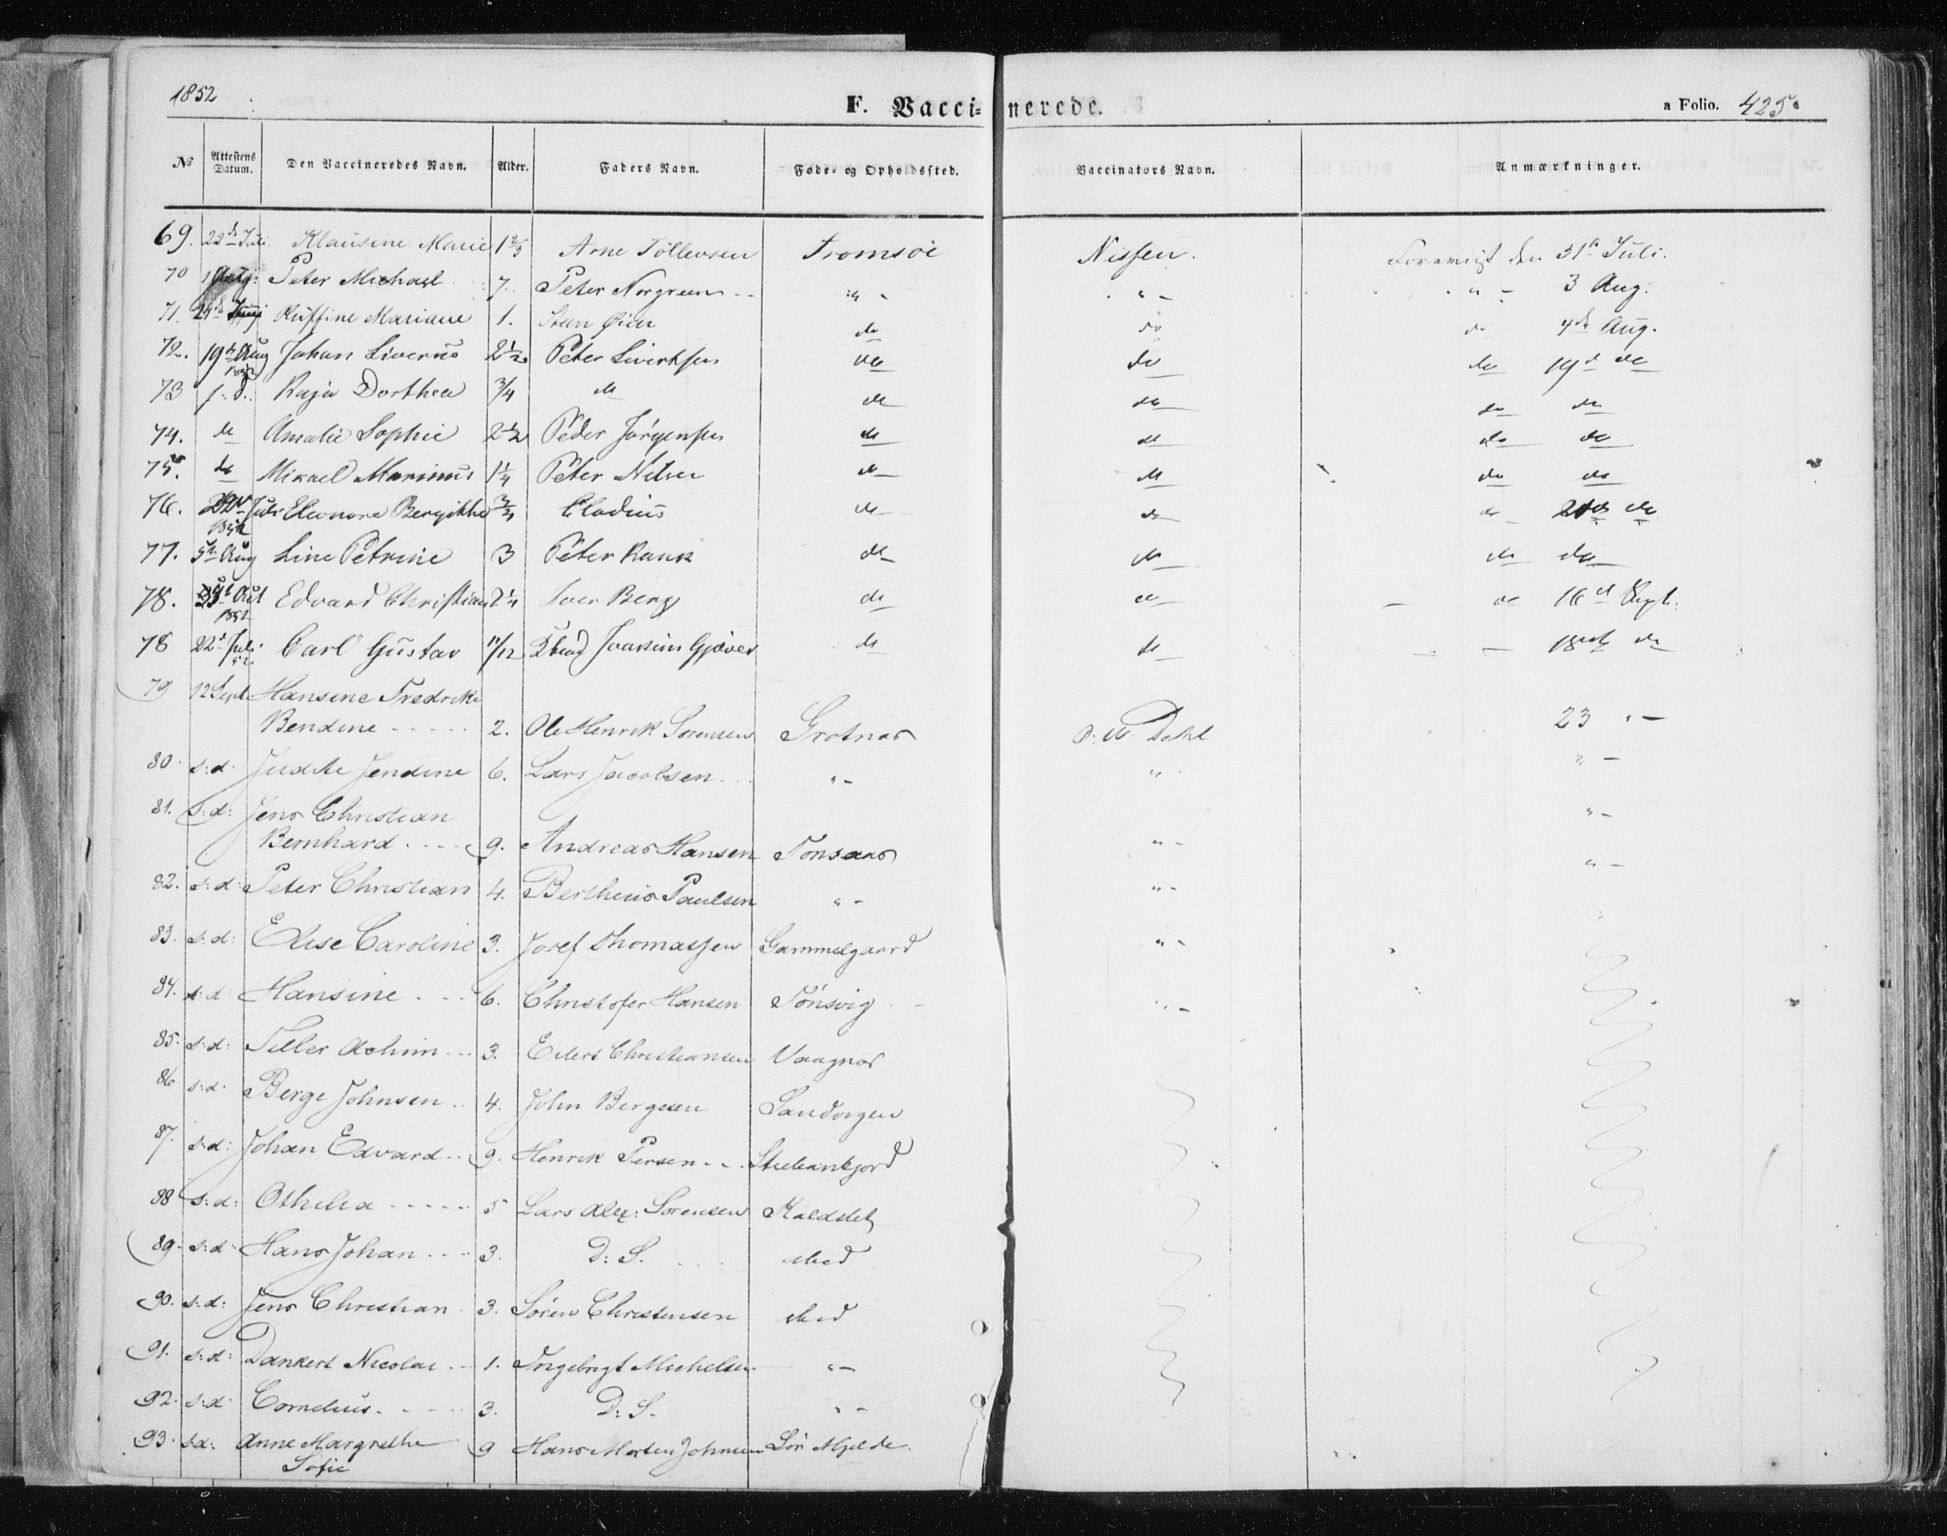 1852
F. Vaccinerede.
a Folio. 425.
No Attestens Datum. Den Vaccineredes Navn. Alder. Faders Navn. Føde- og Opholdssted. Vaccinators Navn. Anmærkninger.
69. 22de Juli Klausine Marie 1 2/3 Arne Tollevsen Tromsøe Nissen. Foreviist den 31te Juli.
70 Peter Michael 7. Peter Norgreen -- " - " - " - 3 Aug:
71. Ruffine Mariane 1. do do do 4de Aug.
72. 19de Aug 1852 Johan Siverus 2 1/2 Peter Sivertsen do do do 19d do
73 s. d. Kaja Dorthea 3/4 do do do do do
74. do Amalie Sophie 2 1/2 Peder Jørgensen do do do do
75. do Mikael Marinus 1 1/4 Peter Nilsen do do do do
76. Juli 1852 Eleonore Bergithe 3/4 Cladius do do do do
77. 5te Aug Line Petrine 3 Peter Rank do do do do
78. 1852 Edvard Christian 2 1/4 Iver Berg do do - do 16d Sept.
78 22d Juli 52 Carl Gustav 11/12 Joakim Gjæver do do - - 18de do
79 12 Sept Hansine Fredrike
Bendine - - - - - 2. Ole Henrik Sørensen Grotnæs O. M. Dahl 23 " -
80. s: d. Judite Jendine 6. Lars Jacobsen " - " " -
81. s: d: Jens Christian " -
Bernhard - - - - 9. Andreas Hansen Tonsaas " -
82. s: d: Peter Christian 4. Bertheus Paulsen " - " - " -
83. s: d: Elise Caroline 3. Josef Thomassen Gammelgaard " -
84. s: d: Hansine - - - 6. Christofer Hansen Tønsvig " -
85. s: d: Teller Achim -- 3. Eilert Christiansen Vaagnæs
86. s: d: Berge Johnsen -- 4. John Bergesen Sandvigen
87. s: d: Johan Edvard -- 9. Henrik Persen - - Stuebankjord
88 s: d: Othelia - - - - - 5 Lars Alex: Sørensen Kaldslet
89. s: d: Hans Johan - - - 3. D: S. ibed
90. s: d: Jens Christian 3. Søren Christensen ibed
91. s: d: Dankert Nicolai -- 1. Ingebrigt Michelsen " -
92. s: d: Cornelius - - - - 3. D: S. " -
93. s: d: Anne Margrethe 9 Hans Morten Johnsen Sør Mjelde
Sofie